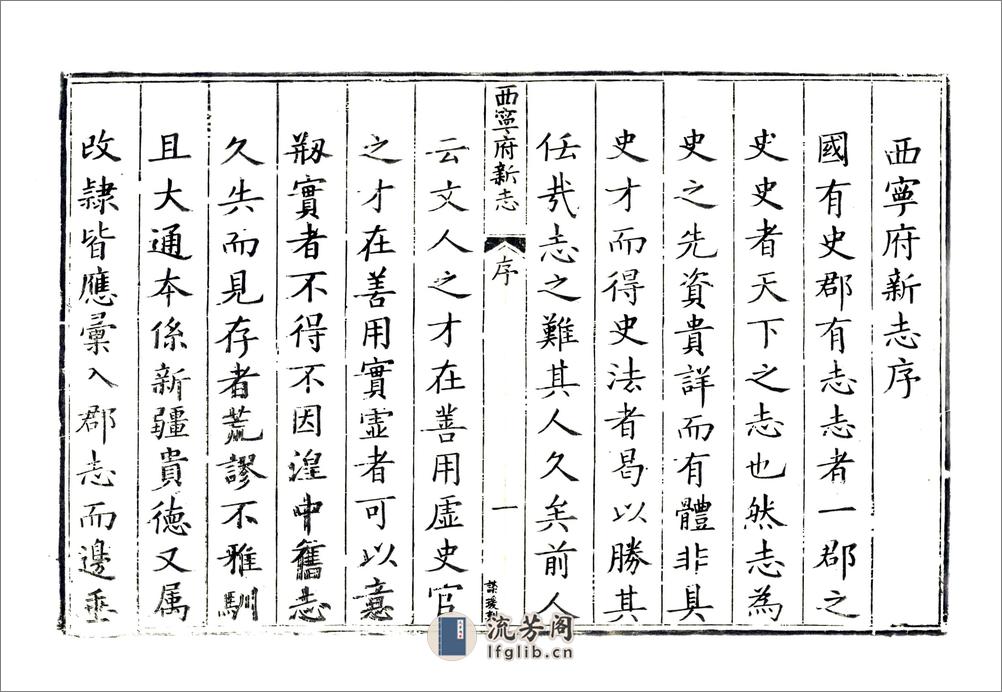 西寧府新志序
國有史郡有志志者一郡之
史史者天下之志也然志為
史之先資貴詳而有體非具
史才而得史法者曷以勝其
任哉志之難其人久矣前人
西寧府新志
序
一
云文人之才在善用虛史官
之才在善用實虛者可以意
剏實者不得不因湟中舊志
久失而見存者荒謬不雅馴
且大通本係新疆貴德又属
改隸皆應彙入郡志而邊垂
流芳阁
lfglib.cn